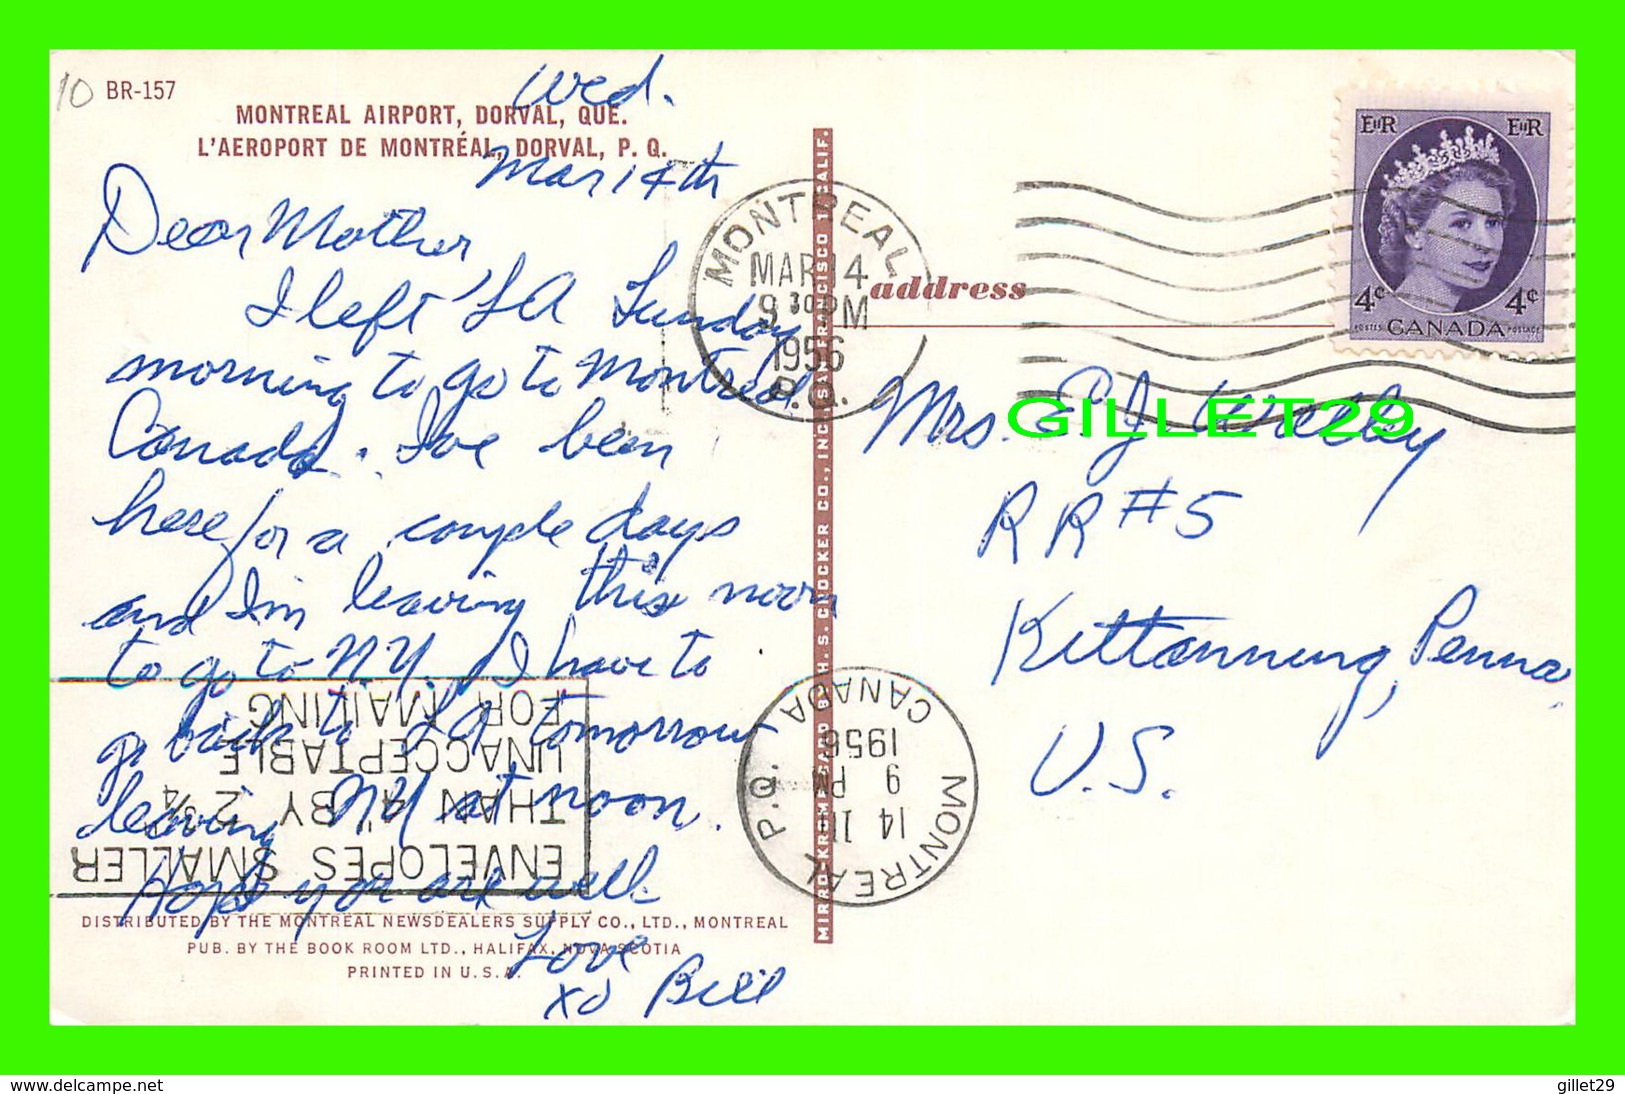 10 BR-157
MONTREAL AIRPORT, DORVAL, QUE.
L'AEROPORT DE MONTRÉAL, DORVAL, P. Q.
Wed.
Mar 14th
Dear Mother
I left LA Sunday
morning to go to Montreal
Canada. I've been
here for a couple days
and I'm leaving this noon
to go to NY. I have to
go back to LA tomorrow
leaving NY at noon.
Hope you are well.
Love
XO Bill
DISTRIBUTED BY THE MONTREAL NEWSDEALERS SUPPLY CO., LTD., MONTREAL
PUB. BY THE BOOK ROOM LTD., HALIFAX, NOVA SCOTIA
PRINTED IN U. S. A.
ENVELOPES SMALLER
THAN 4" BY 2 ¾
UNACCEPTABLE
FOR MAILING
MONTREAL
MAR 14
9 30 PM
1956
P.Q.
MONTREAL P.Q.
14 III
9 PM
1956
CANADA
MIRRO-KROME CARD BY H. S. CROCKER CO., INC., SAN FRANCISCO 1, CALIF.
address
EIIR EIIR
4¢ 4¢
POSTES CANADA POSTAGE
Mrs. E. J.
RR #5
Kittanning, Penna
U.S.
GILLET29
delcampe.net
gillet29